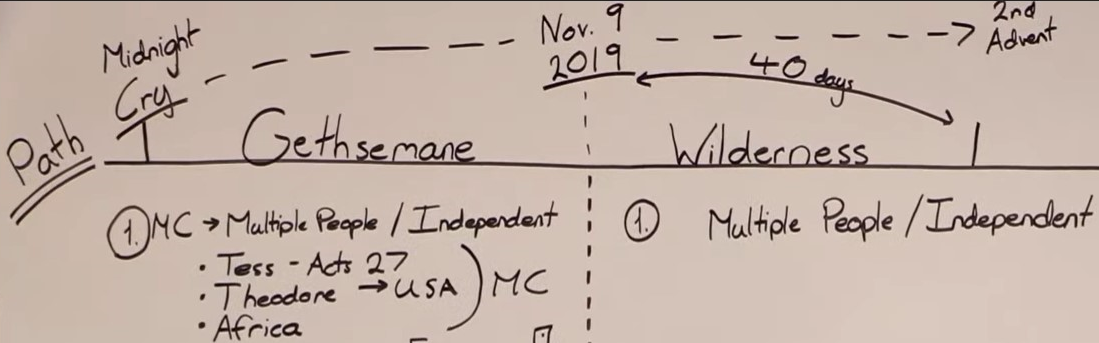 Midnight
Cry
Nov. 9
2019
2nd
Advent
40 days
Path
Gethsemane
Wilderness
1. MC → Multiple People / Independent
• Tess - Acts 27
• Theodore → USA
• Africa
MC
1. Multiple People / Independent